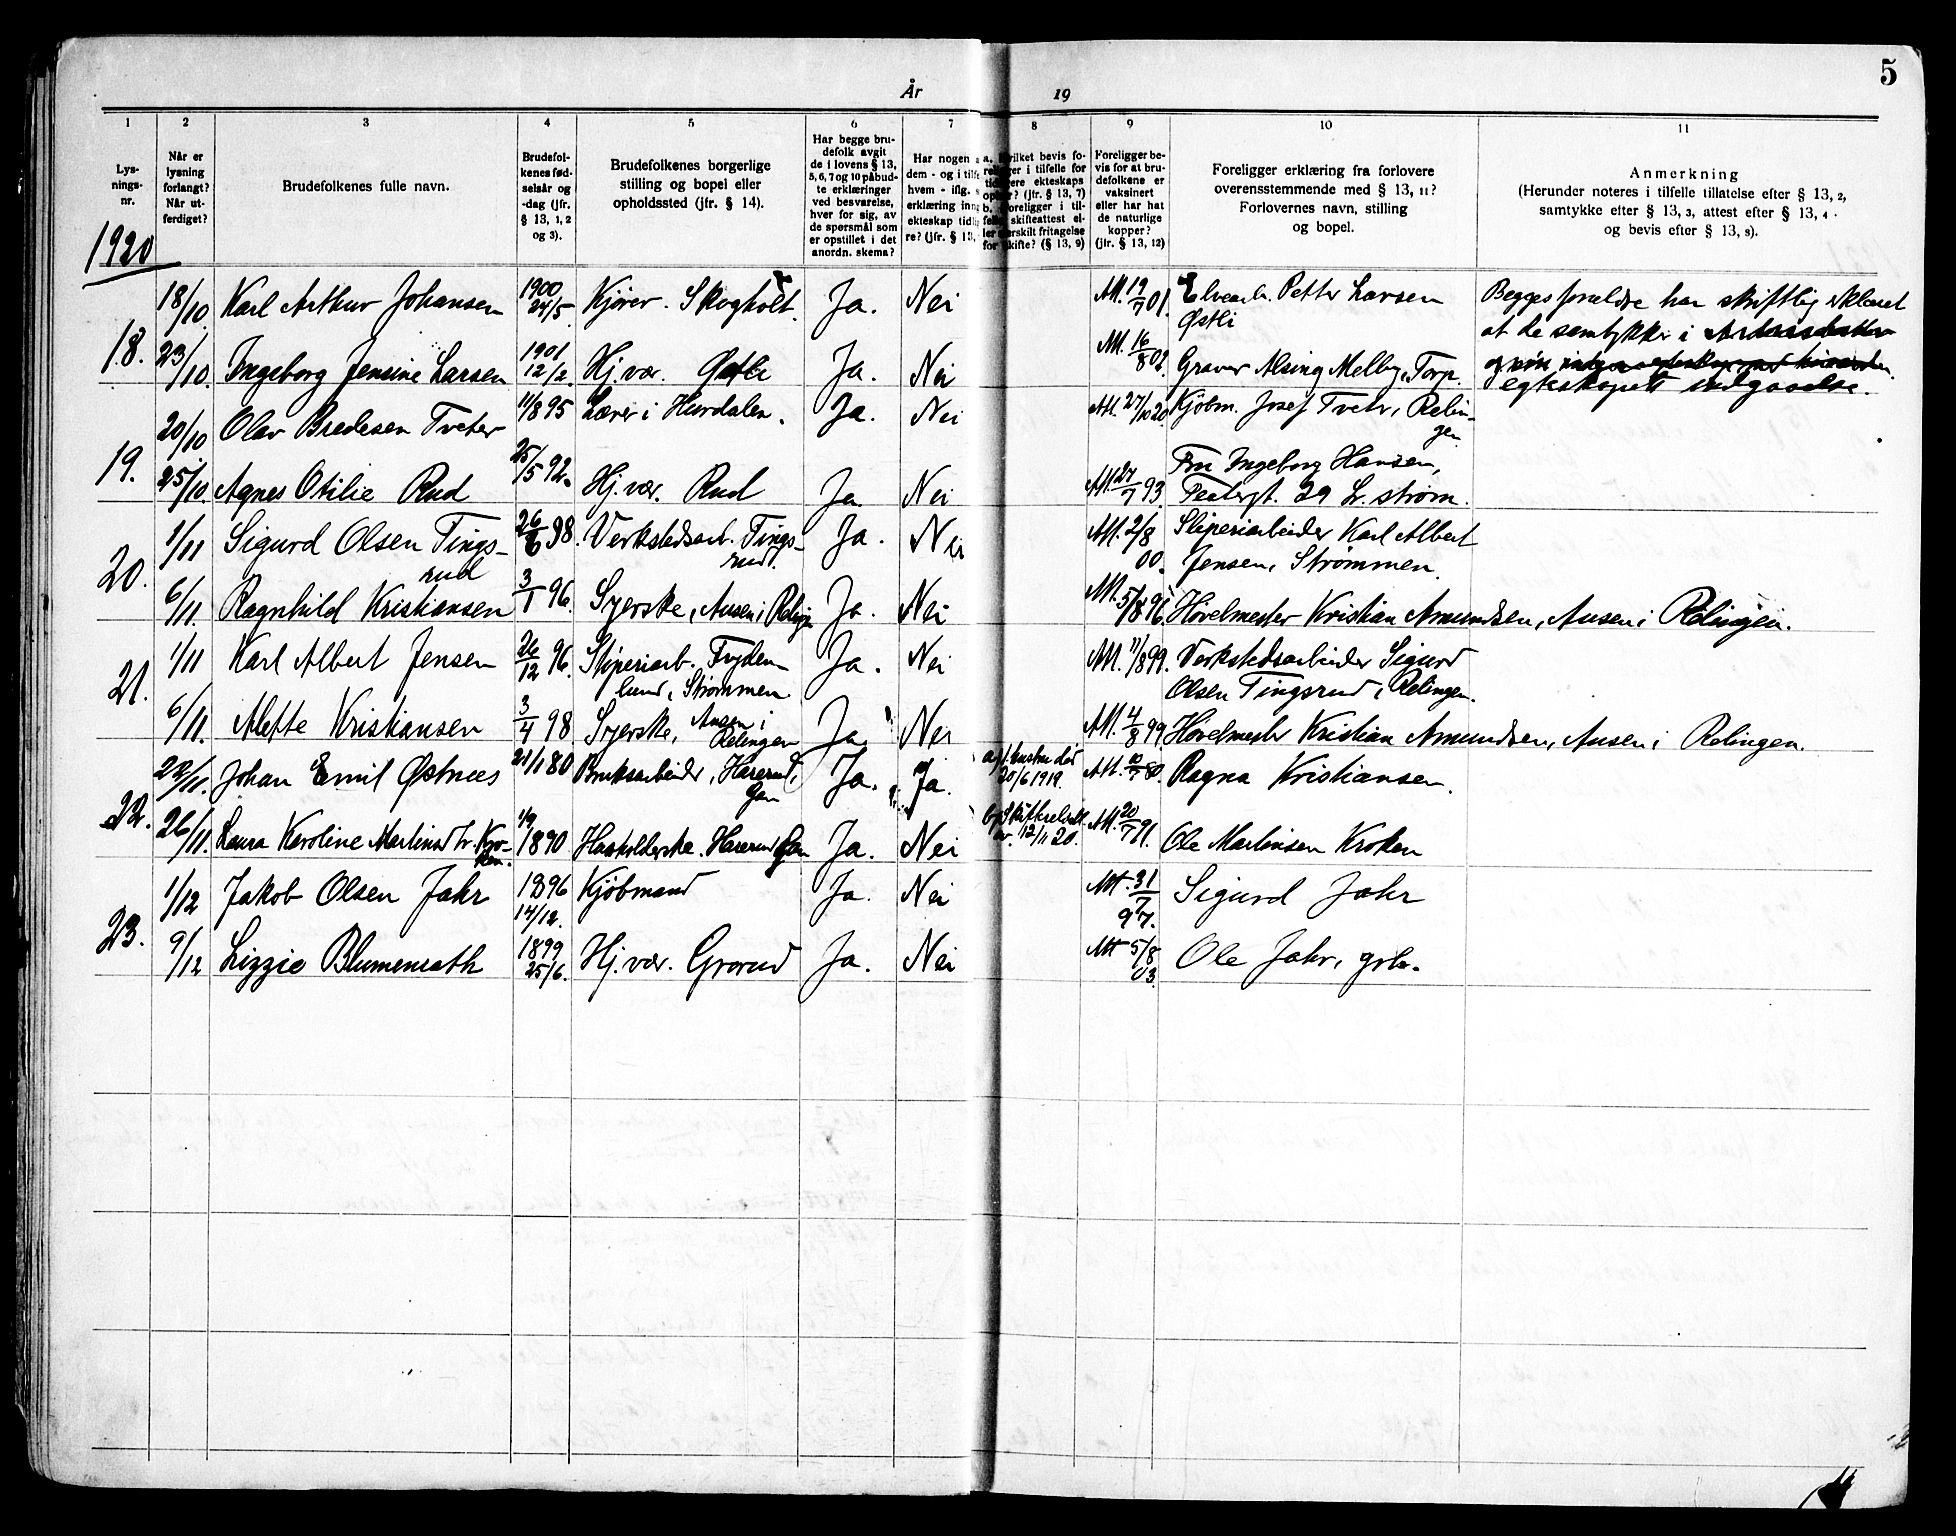 5
År 19
1 2 3 4 5 6 7 8 9 10 11
Lys-
nings-
nr.
Når er
lysning
forlangt?
Når ut-
ferdiget?
Brudefolkenes fulle navn.
Brudefol-
kenes fød-
selsår og
-dag (jfr.
§ 13, 1, 2
og 3).
Brudefolkenes borgerlige
stilling og bopel eller
opholdssted (jfr. § 14).
Har begge bru-
defolk avgit
de i lovens § 13,
5, 6, 7 og 10 påbud-
te erklæringer
ved besvarelse,
hver for sig, av
de spørsmål som
er opstillet i det
anordn. skema?
Har nogen a
dem - og i tilf
hvem - iflg. s
erklæring inn
ekteskap tidl
re? (jfr. § 13,
a. Hvilket bevis fo-
religger i tilfelle for
tidligere ekteskaps
ophør? (jfr. § 13, 7)
b. Foreligger i til-
felle skifteattest el-
ler særskilt fritagelse
for skifte? (§ 13, 9)
Foreligger be-
vis for at bru-
defolkene er
vaksinert
eller har hat
de naturlige
kopper?
(jfr. § 13, 12)
Foreligger erklæring fra forlovere
overensstemmende med § 13, 11?
Forlovernes navn, stilling
og bopel.
Anmerkning
(Herunder noteres i tilfelle tillatelse efter § 13, 2,
samtykke efter § 13, 3, attest efter § 13, 4
og bevis efter § 13, 8).
1920
18/10 Karl Arthur Johansen 1900 24/5 Kjører. Skogholt. Ja. Nei Att. 19/7 01. Elvearb. Petter Larsen Østli
Begges foreldre har skriftlig erklæret
at de samtykker i
egteskapets indgaaelse.
18. 23/10. Ingeborg Jensine Larsen 1901 12/2. Hj. vær. Østli Ja. Nei Att. 16/8 02. Graver Alsing Melby, Torp.
20/10 Olav Bredesen Tveter 11/8 95 Lærer i Hurdalen. Ja. Nei Att. 27/10 20 Kjøbm. Josef Tveter, Rælin-
gen
19. 25/10. Agnes Otilie Rud 25/5 92. Hj. vær. Rud Ja. Nei Att. 27/7 93. Fru Ingeborg Hansen,
Teatergt. 29 L. strøm.
1/11 Sigurd Olsen Tings-
rud 26/6 98. Verkstedsarb. Tings-
rud. Ja. Nei Att. 2/8 00. Sliperiarbeider Karl Albert
Jensen, Strømmen.
20. 6/11. Ragnhild Kristiansen 3/1 96. Syerske, Ausen i Rælingen Ja. Nei Att. 5/8 96. Høvelmester Kristian Amundsen, Ausen i Rælingen.
1/11 Karl Albert Jensen 26/12 96. Sliperiarb. Fryden-
lund, Strømmen Ja. Nei Att. 11/8 99. Verkstedsarbeider Sigurd
Olsen Tingsrud, Rælingen.
21. 6/11. Alette Kristiansen 3/4 98 Syerske, Ausen i
Rælingen Ja. Nei Att. 4/8 99 Høvelmester Kristian Amundsen, Ausen i Rælingen.
22/11. Johan Emil Østnes 21/1 80 Bruksarbeider, Harerud,
Gan Ja. Ja. a) f. hustru død
20/6 1919. Att. 10/7 80. Ragna Kristiansen.
22. 26/11. Laura Karoline Martinsd tr. Kro-
ken. 1/9 1890 Husholderske. Harerud Gan Ja. Nei 12/11 20. Att. 20/7 91. Ole Martinsen Kroken
1/12 Jakob Olsen Jahr 1896 14/12. Kjøbmand Ja. Nei Att. 31/7 97. Sigurd Jahr
23. 9/12 Lizzie Blumenrath 1899 25/6. Hj. vær. Grorud Ja. Nei Att 5/8 03. Ole Jahr, grbr.